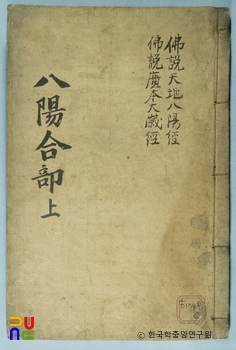 佛說天地八陽經
佛說廣本太歲經
八陽合部 上
ⓒ 한국학중앙연구원